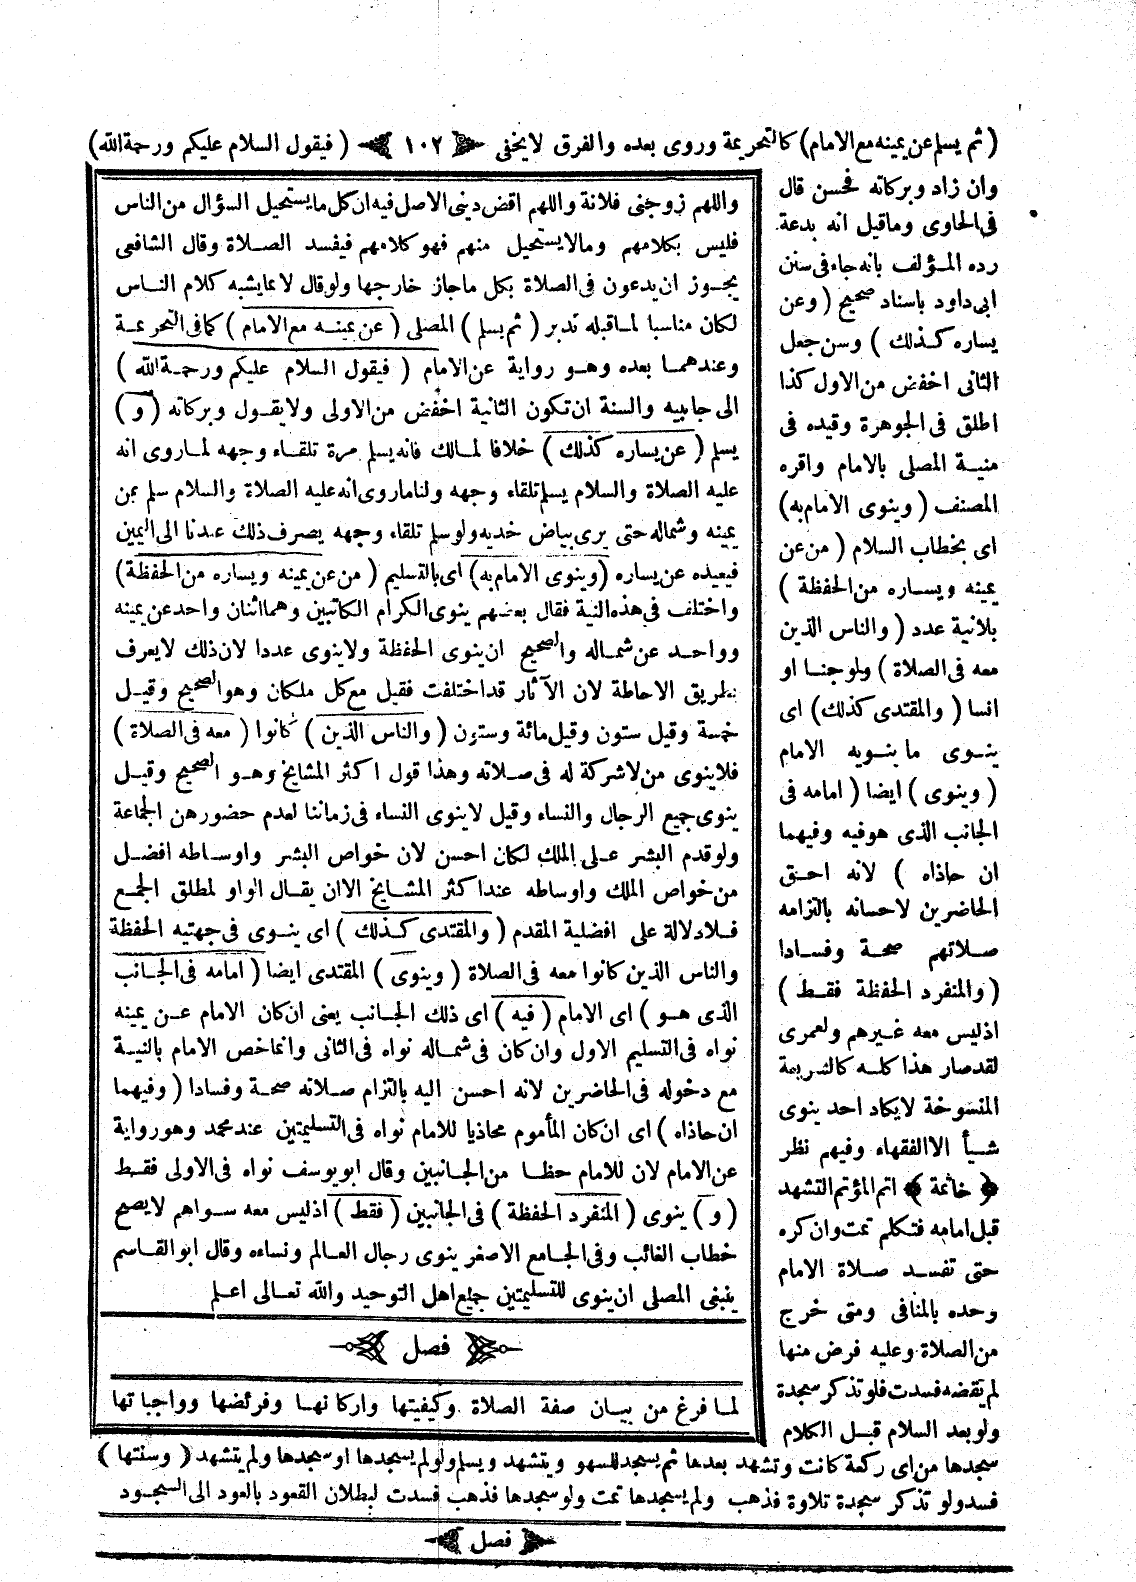 (ثم يسلم عن يمينه مع الامام) كالتحريمة وروى بعده والفرق لايخفى ﴿ ١٠٢ ﴾ ( فيقول السلام عليكم ورحمة الله)
وان زاد وبركاته فحسن قال
فى الحاوى وماقيل انه بدعة
رده المؤلف بانه جاء فى سنن
ابى داود باسناد صحيح ( وعن
يساره كذلك ) وسن جعل
الثانى اخفض من الاول كذا
اطلق فى الجوهرة وقيده فى
منية المصلى بالامام واقره
المصنف ( وينوى الامام به)
اى بخطاب السلام ( من عن
يمينه ويساره من الحفظة )
بلانية عدد ( والناس الذين
معه فى الصلاة ) ولو جنا او
انسا ( والمقتدى كذلك) اى
ينوى ما ينويه الامام
( وينوى ) ايضا ( امامه فى
الجانب الذى هو فيه وفيهما
ان حاذاه ) لانه احق
الحاضرين لاحسانه بالتزامه
صلاتهم صحة وفسادا
( والمنفرد الحفظة فقط )
اذليس معه غيرهم ولعمرى
لقد صار هذا كله كالشريعة
المنسوخة لايكاد احد ينوى
شيأ الا الفقهاء وفيهم نظر
﴿ خاتمة ﴾ اتم المؤتم التشهد
قبل امامه فتكلم تمت وان كره
حتى تفسد صلاة الامام
وحده بالمنافى ومتى خرج
من الصلاة وعليه فرض منها
لم يقضه فسدت فلو تذكر سجدة
ولو بعد السلام قبل الكلام
سجدها من اى ركعة كانت وتشهد بعدها ثم يسجد للسهو ويتشهد ويسلم ولو لم يسجدها او سجدها ولم يتشهد ( وسنتها )
فسد ولو تذكر سجدة تلاوة فذهب ولم يسجدها تمت ولو سجدها فذهب فسدت لبطلان القعود بالعود الى السجود
﴿ فصل ﴾
واللهم زوجنى فلانة واللهم اقض دينى الاصل فيه ان كل ما يستحيل السؤال من الناس
فليس بكلامهم ومالا يستحيل منهم فهو كلامهم فيفسد الصلاة وقال الشافعى
يجوز ان يدعون فى الصلاة بكل ماجاز خارجها ولو قال لا بما يشبه كلام الناس
لكان مناسبا لما قبله تدبر ( ثم يسلم ) المصلى ( عن يمينه مع الامام ) كما فى التحريمة
وعندهما بعده وهو رواية عن الامام ( فيقول السلام عليكم ورحمة الله )
الى جانبيه والسنة ان تكون الثانية اخفض من الاولى ولا يقول وبركاته ( و )
يسلم ( عن يساره كذلك ) خلافا لمالك فانه يسلم مرة تلقاء وجهه لما روى انه
عليه الصلاة والسلام يسلم تلقاء وجهه ولنا ماروى انه عليه الصلاة والسلام سلم بمن
يمينه وشماله حتى يرى بياض خديه ولو سلم تلقاء وجهه يصرف ذلك عندنا الى اليمين
فيعيده عن يساره ( وينوى الامام به) اى بالتسليم ( من عن يمينه ويساره من الحفظة)
واختلف فى هذه النية فقال بعضهم ينوى الكرام الكاتبين وهما اثنان واحد عن يمينه
وواحد عن شماله والصحيح ان ينوى الحفظة ولا ينوى عددا لان ذلك لا يعرف
بطريق الاحاطة لان الآثار قد اختلفت فقيل مع كل ملكان وهو الصحيح وقيل
خمسة وقيل ستون وقيل مائة وستون ( والناس الذين ) كانوا ( معه فى الصلاة )
فلا ينوى من لا شركة له فى صلاته وهذا قول اكثر المشايخ وهو الصحيح وقيل
ينوى جميع الرجال والنساء وقيل لا ينوى النساء فى زماننا لعدم حضورهن الجماعة
ولو قدم البشر على الملك لكان احسن لان خواص البشر واوساطه افضل
من خواص الملك واوساطه عند اكثر المشايخ الا ان يقال الواو لمطلق الجمع
فلا دلالة على افضلية المقدم ( والمقتدى كذلك ) اى ينوى فى جهتيه الحفظة
والناس الذين كانوا معه فى الصلاة ( وينوى ) المقتدى ايضا ( امامه فى الجانب
الذى هو ) اى الامام ( فيه ) اى ذلك الجانب يعنى ان كان الامام عن يمينه
نواه فى التسليم الاول وان كان فى شماله نواه فى الثانى وانما خص الامام بالنية
مع دخوله فى الحاضرين لانه احسن اليه بالتزام صلاته صحة وفسادا ( وفيهما
ان حاذاه ) اى ان كان المأموم محاذيا للامام نواه فى التسليمتين عند محمد وهو رواية
عن الامام لان للامام حظا من الجانبين وقال ابو يوسف نواه فى الاولى فقط
( و ) ينوى ( المنفرد الحفظة ) فى الجانبين ( فقط ) اذليس معه سواهم لا يصح
خطاب الغائب وفى الجامع الاصغر ينوى رجال العالم ونساءه وقال ابو القاسم
ينبغى المصلى ان ينوى للتسليمتين جميع اهل التوحيد والله تعالى اعلم
﴿ فصل ﴾
لما فرغ من بيان صفة الصلاة وكيفيتها واركانها وفرئضها وواجباتها